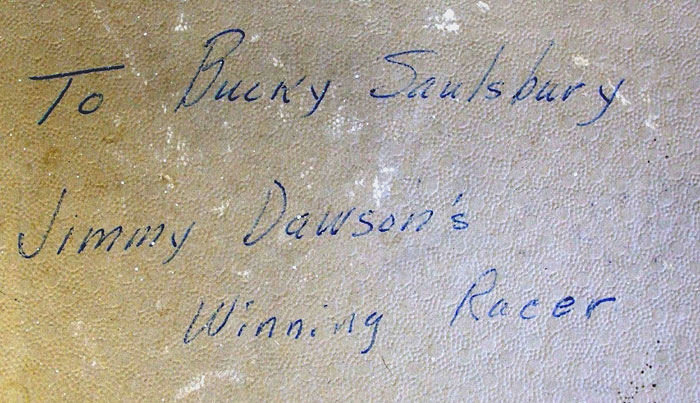 To Bucky Saulsbury
Jimmy Dawson's
Winning Racer